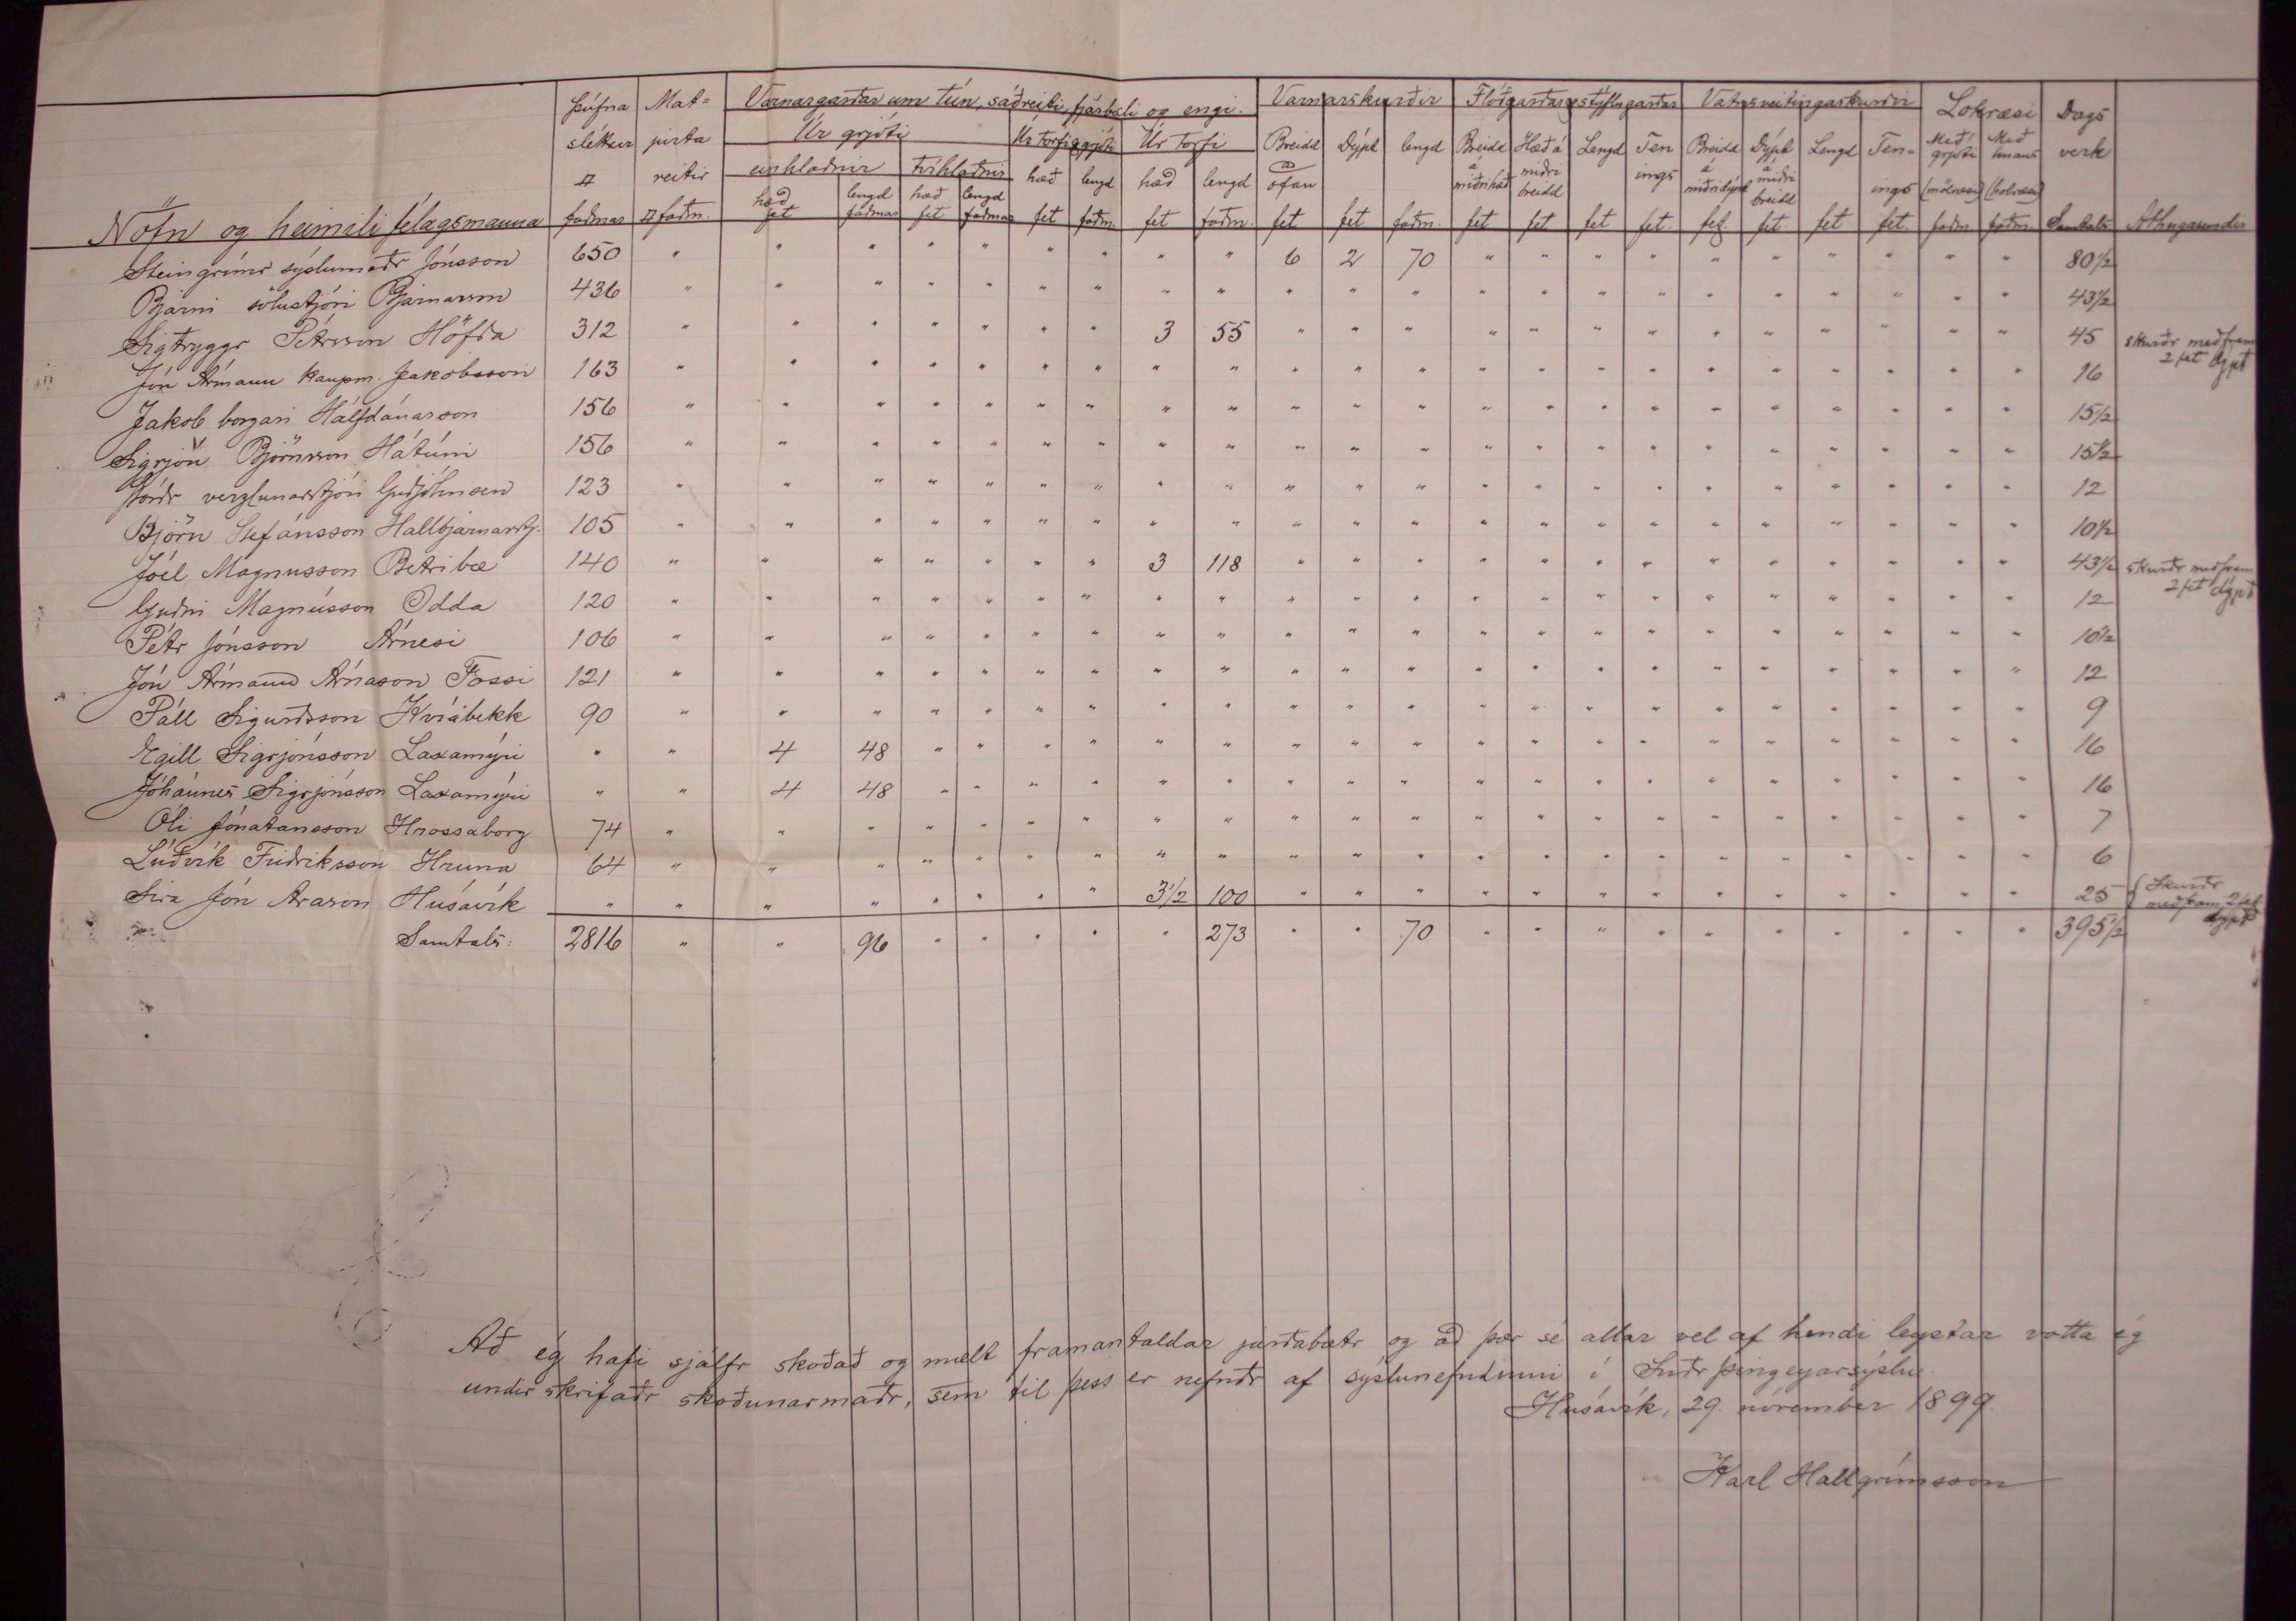 Þúfna Mat= Varnargarðar um tún, sáðreiti, fjárbæli og engi. Varnarskurðir Flóðgarðar og stýflugarðar Vatnsveitingaskurðir Lokræsi Dags
sléttur jurta Úr grjóti Úr torfi & grjóti Úr torfi Breidd Dýpt lengd Breidd Hæð á Lengd Ten Breidd Dýpt Lengd Ten= Með grjóti Með hnaus verk
□ reitir einhlaðnir tvíhlaðnir hæð lengd hæð lengd að ofan á miðri hæð miðri breidd ings á miðri dýpt á miðri breidd ings (mölræsi) (holræsi)
hæð lengd hæð lengd
Nöfn og heimili félagsmanna faðmar □ faðm. fet faðmar fet faðmar fet faðm. fet faðm. fet fet faðm. fet fet fet fet. fet. fet. fet fet. faðm. faðm. Samtals Athugasemdir
Steingrímr sýslumaðr Jónsson 650 " " " " " " " " " 6 2 70 " " " " " " " " " " 80 1/2
Bjarni sölustjóri Bjarnarson 436 " " " " " " " " " " " " " " " " " " " " " " 43 1/2
Sigtryggr Pétrsson Höfða 312 " " " " " " " 3 55 " " " " " " " " " " " " " 45 skurðr meðfram
2 fet dýpt
Jón Ármann kaupm. Jakobsson 163 " " " " " " " " " " " " " " " " " " " " " " 16
Jakob borgari Hálfdánarson 156 " " " " " " " " " " " " " " " " " " " " " " 15 1/2
Sigrjón Björnsson Hátúni 156 " " " " " " " " " " " " " " " " " " " " " " 15 1/2
Þórðr verzlunarstjóri Guðjohnsen 123 " " " " " " " " " " " " " " " " " " " " " " 12
Björn Stefánsson Hallbjarnarst. 105 " " " " " " " " " " " " " " " " " " " " " " 10 1/2
Jóel Magnusson Betribæ 140 " " " " " " " 3 118 " " " " " " " " " " " " " 43 1/2 skurðr meðfram
2 fet dýpt
Guðni Magnússon Odda 120 " " " " " " " " " " " " " " " " " " " " " " 12
Pétr Jónsson Árnesi 106 " " " " " " " " " " " " " " " " " " " " " " 10 1/2
Jón Ármann Árnason Fossi 121 " " " " " " " " " " " " " " " " " " " " " " 12
Páll Sigurðsson Kvíabekk 90 " " " " " " " " " " " " " " " " " " " " " " 9
Egill Sigrjónsson Laxamýri " " 4 48 " " " " " " " " " " " " " " " " " " " 16
Jóhannes Sigrjónsson Laxamýri " " 4 48 " " " " " " " " " " " " " " " " " " " 16
Óli Jónatansson Hrossaborg 74 " " " " " " " " " " " " " " " " " " " " " " 7
Lúðvík Friðriksson Hruna 64 " " " " " " " " " " " " " " " " " " " " " " 6
Síra Jón Arason Húsavík " " " " " " " " 3 1/2 100 " " " " " " " " " " " " " 25 { Skurðr
meðfram, 2 fet
dýpt
Samtals: 2816 " " 96 " " " " " 273 " " 70 " " " " " " " " " " 395 1/2
Að ég hafi sjálfr skoðað og mælt framantaldar jarðabætr og að þær sé allar vel af hendi leystar votta ég
undirskrifaðr skoðunarmaðr, sem til þess er nefndr af sýslunefndinni í Suðr þingeyarsýslu.
Húsavík, 29. nóvember 1899.
Karl Hallgrímsson